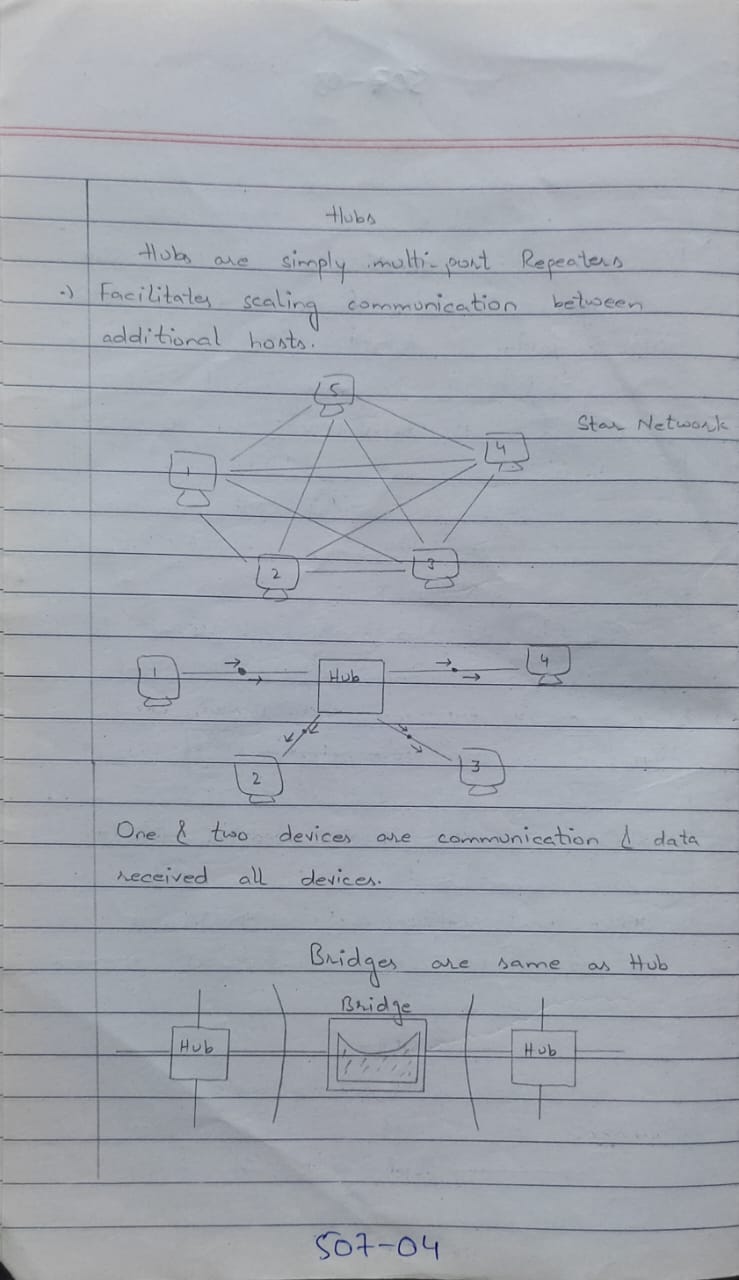 Hubs
Hubs are simply multi-port Repeaters
·) Facilitates scaling communication between
additional hosts.
5
Star Network
4
1
3
2
1
Hub
4
2
3
One & two devices are communication & data
received all devices.
Bridges are same as Hub
Bridge
Hub
Hub
507-04